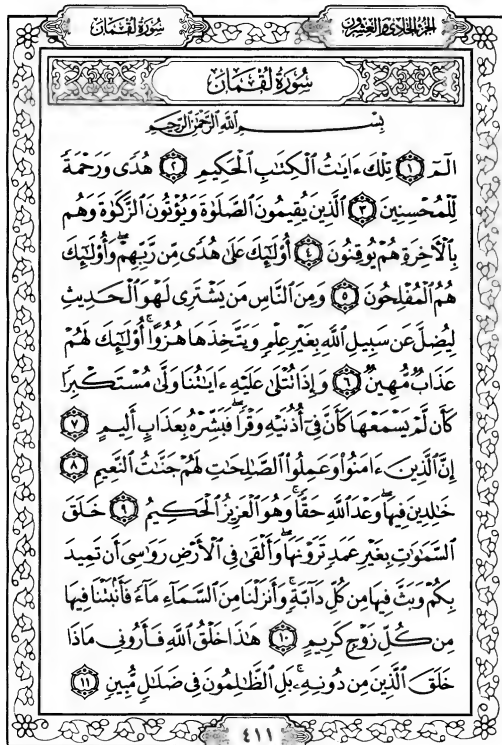 سُورَةُ لُقْمَان
الجُزْءُ الحَادِي وَالعِشْرُون
سُورَةُ لُقْمَانَ
بِسْمِ اللَّهِ الرَّحْمَٰنِ الرَّحِيمِ
الٓمٓ ١ تِلْكَ ءَايَٰتُ ٱلْكِتَٰبِ ٱلْحَكِيمِ ٢ هُدًى وَرَحْمَةً
لِّلْمُحْسِنِينَ ٣ ٱلَّذِينَ يُقِيمُونَ ٱلصَّلَوٰةَ وَيُؤْتُونَ ٱلزَّكَوٰةَ وَهُم
بِٱلْءَاخِرَةِ هُمْ يُوقِنُونَ ٤ أُو۟لَٰٓئِكَ عَلَىٰ هُدًى مِّن رَّبِّهِمْ ۖ وَأُو۟لَٰٓئِكَ
هُمُ ٱلْمُفْلِحُونَ ٥ وَمِنَ ٱلنَّاسِ مَن يَشْتَرِى لَهْوَ ٱلْحَدِيثِ
لِيُضِلَّ عَن سَبِيلِ ٱللَّهِ بِغَيْرِ عِلْمٍ وَيَتَّخِذَهَا هُزُوًا ۚ أُو۟لَٰٓئِكَ لَهُمْ
عَذَابٌ مُّهِينٌ ٦ وَإِذَا تُتْلَىٰ عَلَيْهِ ءَايَٰتُنَا وَلَّىٰ مُسْتَكْبِرًا
كَأَن لَّمْ يَسْمَعْهَا كَأَنَّ فِىٓ أُذُنَيْهِ وَقْرًا ۖ فَبَشِّرْهُ بِعَذَابٍ أَلِيمٍ ٧
إِنَّ ٱلَّذِينَ ءَامَنُوا۟ وَعَمِلُوا۟ ٱلصَّٰلِحَٰتِ لَهُمْ جَنَّٰتُ ٱلنَّعِيمِ ٨
خَٰلِدِينَ فِيهَا ۖ وَعْدَ ٱللَّهِ حَقًّا ۚ وَهُوَ ٱلْعَزِيزُ ٱلْحَكِيمُ ٩ خَلَقَ
ٱلسَّمَٰوَٰتِ بِغَيْرِ عَمَدٍ تَرَوْنَهَا ۖ وَأَلْقَىٰ فِى ٱلْأَرْضِ رَوَٰسِىَ أَن تَمِيدَ
بِكُمْ وَبَثَّ فِيهَا مِن كُلِّ دَآبَّةٍ ۚ وَأَنزَلْنَا مِنَ ٱلسَّمَآءِ مَآءً فَأَنۢبَتْنَا فِيهَا
مِن كُلِّ زَوْجٍ كَرِيمٍ ١٠ هَٰذَا خَلْقُ ٱللَّهِ فَأَرُونِى مَاذَا
خَلَقَ ٱلَّذِينَ مِن دُونِهِۦ ۚ بَلِ ٱلظَّٰلِمُونَ فِى ضَلَٰلٍ مُّبِينٍ ١١
٤١١